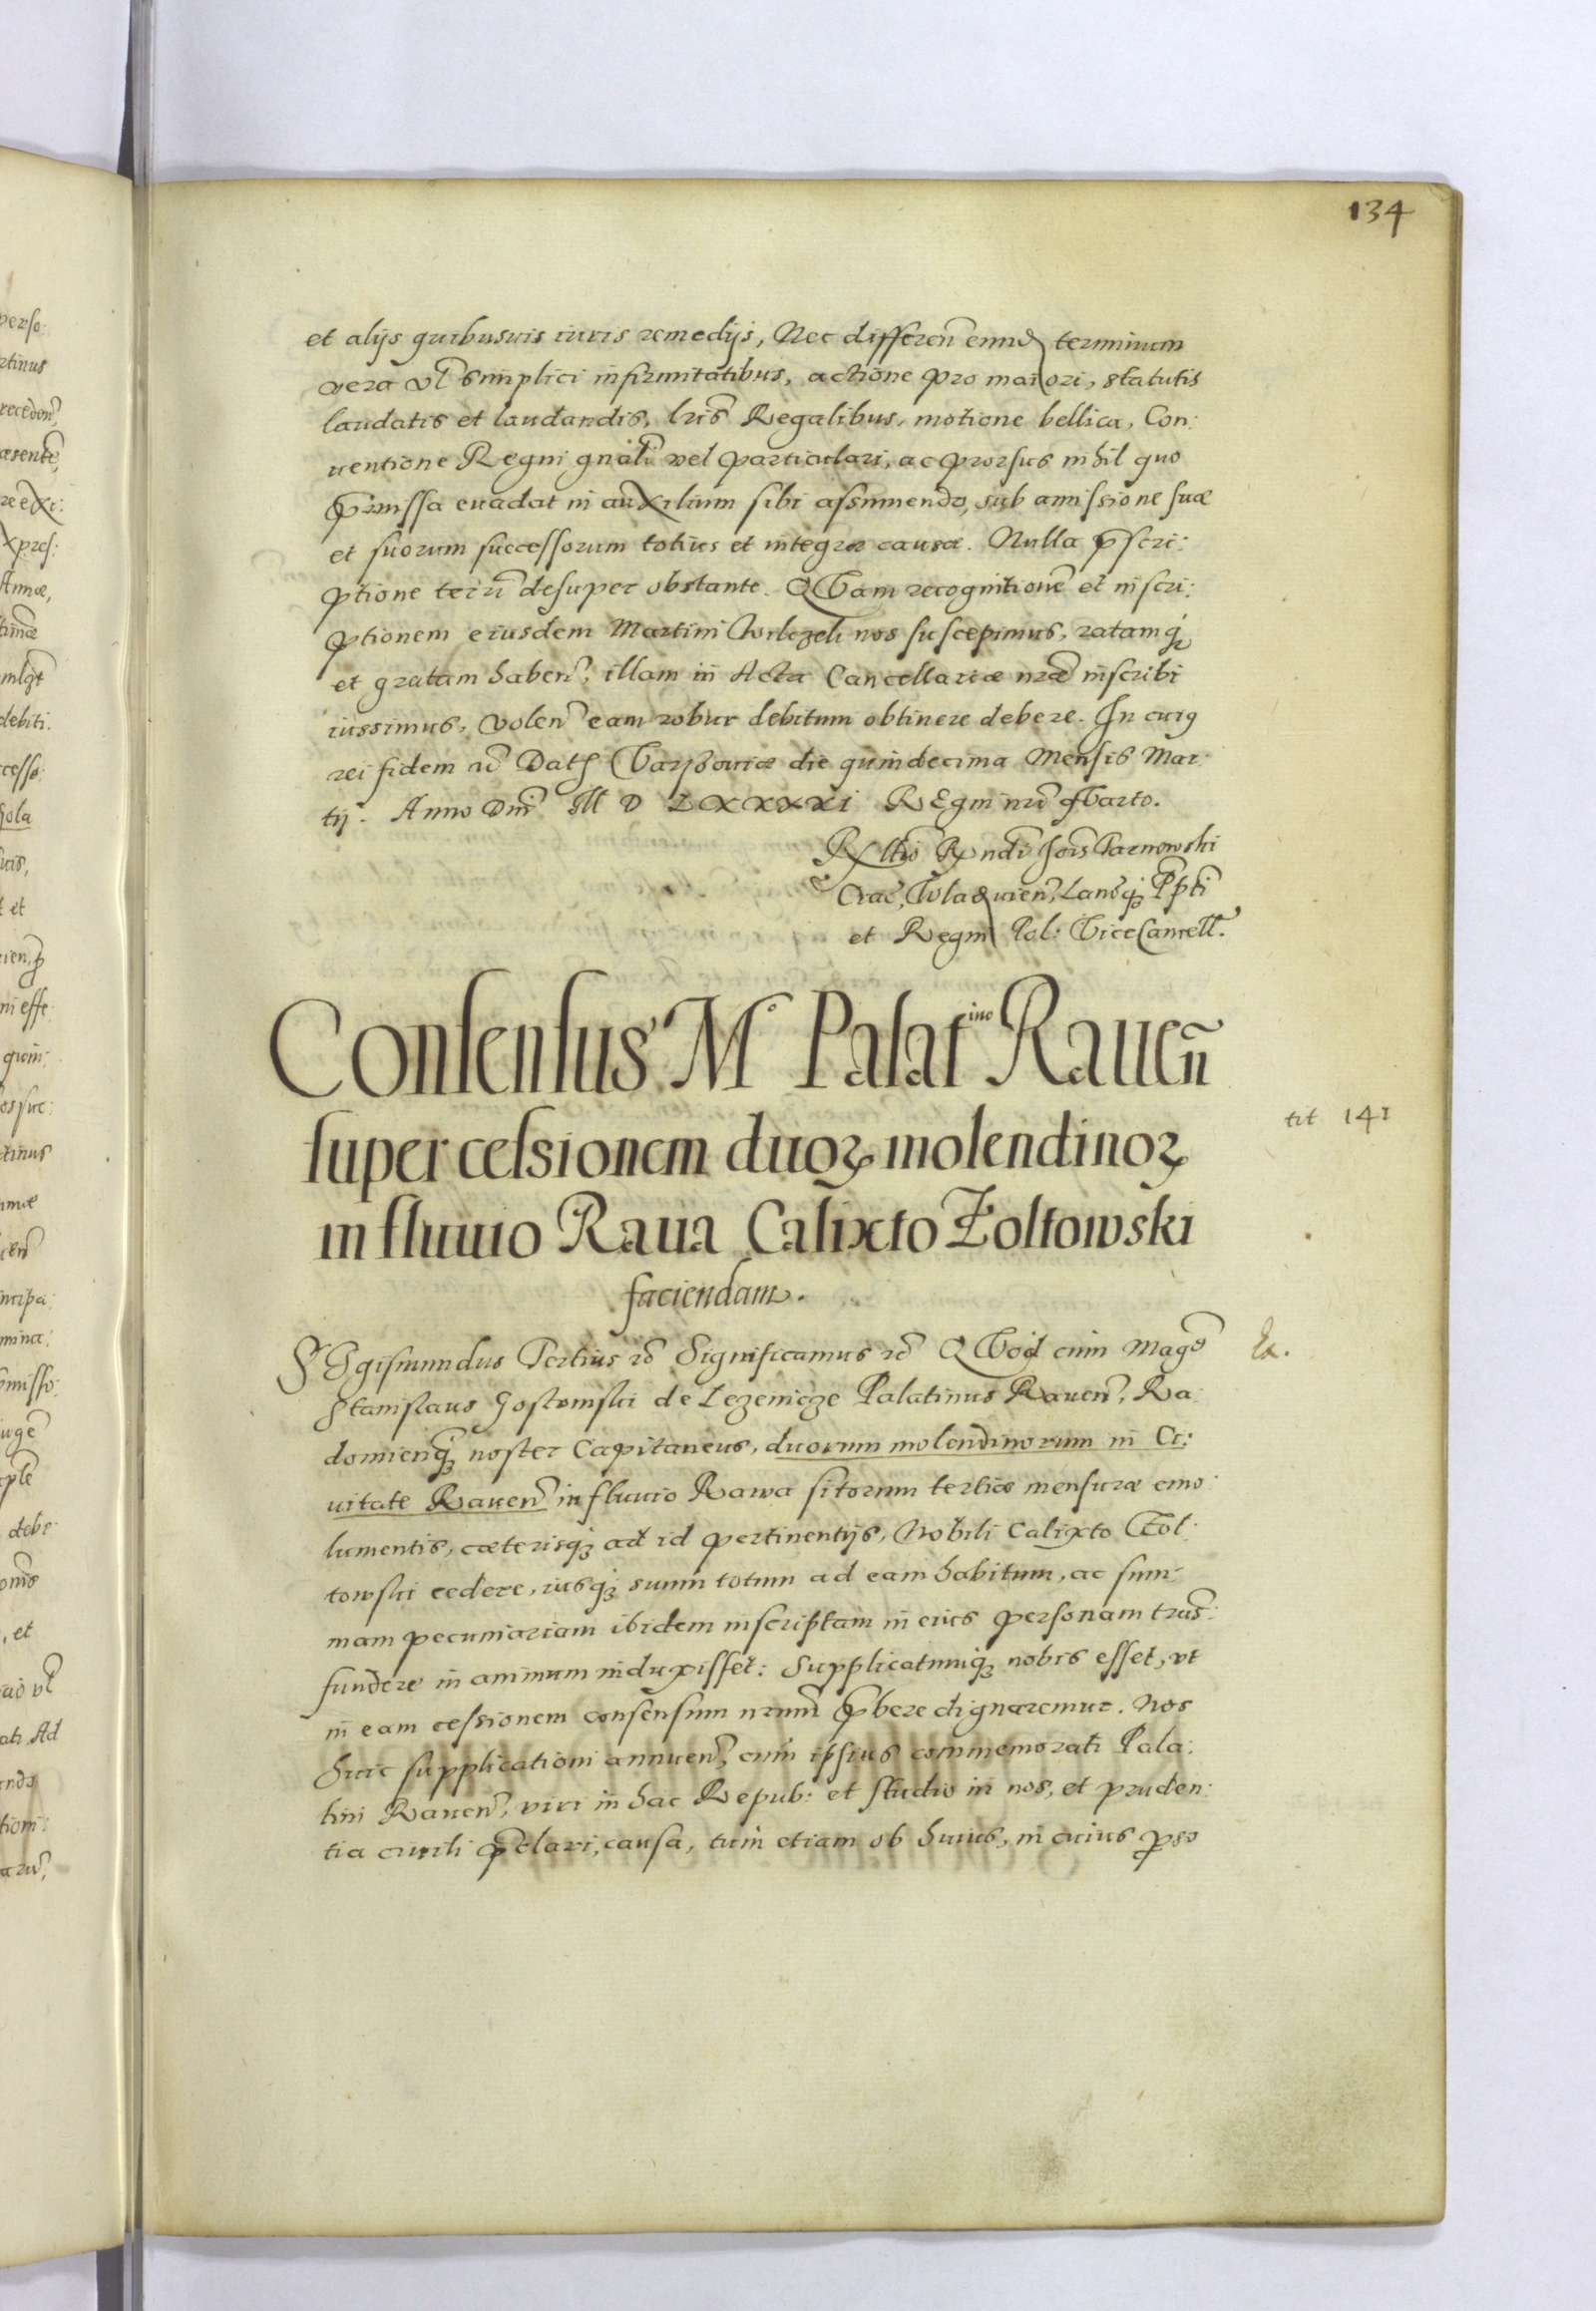 134
et alijs quibusuis iuris remedijs, Nec differeñ eund terminum
vera vl̃ simplici infirmitatibus, actione pro maiori, statutis
laudatis et laudandis, lris̃ Regalibus, motione bellica, Con:
uentione Regni gnãli vel particulari, ac prorsus nihil quo
p̃missa euadat in auxilium sibi assumendo, sub amissione suæ
et suorum successorum totius et integræ causæ. Nulla p̃scri:
ptione terr̃ desuper obstante. QVam recognitionẽ et inscri:
ptionem eiusdem Martini nos suscepimus, ratamq́
et gratam habeñ, illam in Acta Cancellariæ nræ̃ inscribi
iussimus, voleñ eam robur debitum obtinere debere. In cuiꝯ
rei fidem rc̃ Datꝭ Varssouiæ die quindecima Mensis Mar:
tij. Anno Dnĩ M D LXXXXI REgni nrĩ qVarto.
Rltĩo Rndĩ Joĩs Tarnowski
Crac̃, Vladuieñ, Lancq́ꝫ Pptĩ
et Regni Pol: ViceCancell̃.
Consensus Mᵒ Palatⁱⁿᵒ Raueñ
super cessionem duoꝝ molendinoꝝ
in fluuio Raua Calixto Żoltowski
faciendam.
tit 141
SIgismundus Tertius rc̃ Significamus rc̃ QVod cum Magc̃
Ex.
Stanislaus Gostomski de Lezenicze Palatinus Raueñ, Ra:
domienq́ꝫ noster Capitaneus, duorum molendinorum in Ci:
uitate Raueñ in fluuio Rawa sitorum tertiæ mensuræ emo:
lumentis, cæterisq́ꝫ ad id pertinentijs, Nobili Calixto Żol:
towski cedere, iusq́ꝫ suum totum ad eam habitum, ac sum:
mam pecuniariam ibidem inscriptam in eius personam trãs:
fundere in animum induxisset: Supplicatumq́ꝫ nobis esset, vt
in eam cessionem consensum nrũm p̃bere dignaremur. Nos
huic supplicationi annueñ, cum ipsius commemorati Pala:
tini Raueñ, viri in hac Repub: et studio in nos, et pruden:
tia ciuili p̃clari, causa, tum etiam ob huius, in cuius pso